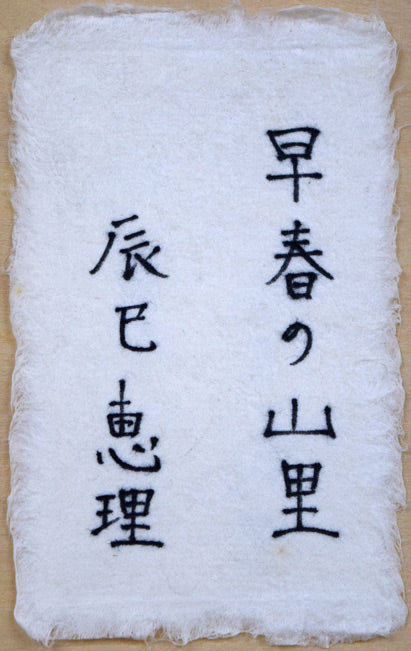 早春の山里
辰巳恵理